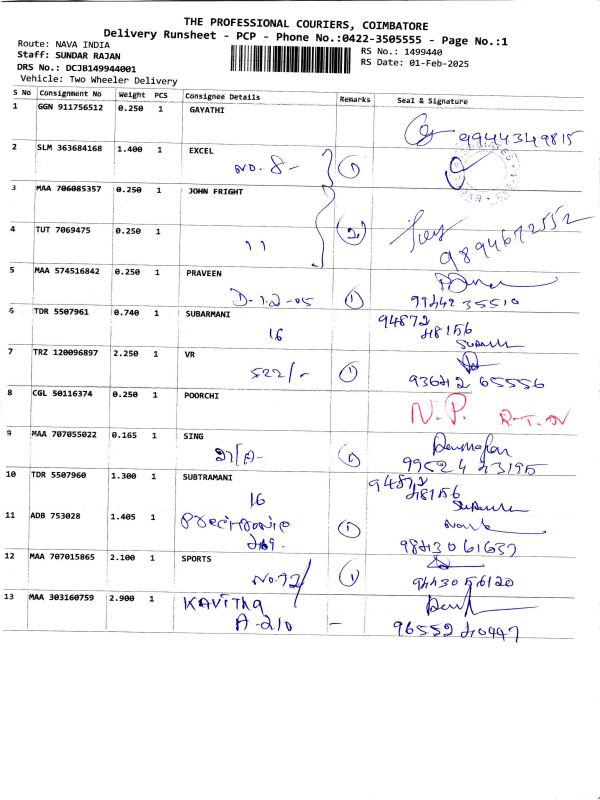 THE PROFESSIONAL COURIERS, COIMBATORE
Delivery Runsheet - PCP - Phone No.:0422-3505555 - Page No.:1
Route: NAVA INDIA
Staff: SUNDAR RAJAN
DRS No.: DCJB149944001
Vehicle: Two Wheeler Delivery
RS No.: 1499440
RS Date: 01-Feb-2025
S No Consignment No Weight PCS Consignee Details Remarks Seal & Signature
1 GGN 911756512 0.250 1 GAYATHI
9944349815
2 SLM 363684168 1.400 1 EXCEL
NO. 8- 1
3 MAA 706085357 0.250 1 JOHN FRIGHT
2
4 TUT 7069475 0.250 1
11 9894672552
5 MAA 574516842 0.250 1 PRAVEEN
D-12-05 1 9944235510
6 TDR 5507961 0.740 1 SUBARMANI 94872
16 48156
7 TRZ 120096897 2.250 1 VR
522/- 1 93642 65556
8 CGL 50116374 0.250 1 POORCHI
N.P. R-T-O
9 MAA 707055022 0.165 1 SING
27/A- 99524 43195
10 TDR 5507960 1.300 1 SUBTRAMANI 94872
16 48156
11 ADB 753028 1.405 1 Precitronic
469. 1 98430 61637
12 MAA 707015865 2.100 1 SPORTS
NO.72/ 1 94430 56120
13 MAA 303160759 2.900 1 KAVITHA
A-210 - 96552 40997